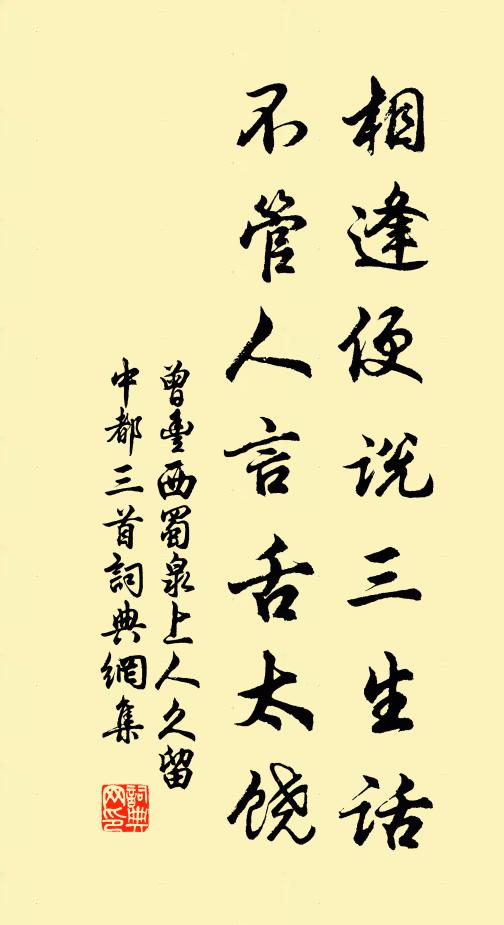 相逢便说三生话
不管人言舌太饶
曾豐西蜀泉上人久留
中都三首詞典網集
詞典
网印